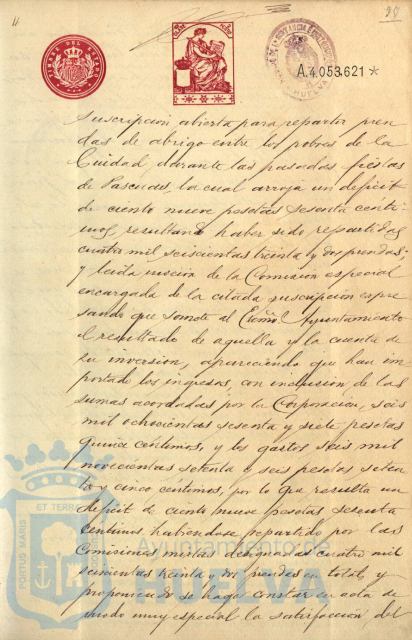 11
20
TIMBRE DEL ESTADO
A.4.053.621*
HUELVA
Suscripción abierta para repartir pren
das de abrigo entre los pobres de la
Ciudad, durante las pasadas fiestas
de Pascuas, la cual arroja un deficit
de ciento nueve pesetas sesenta centi-
mos, resultando haber sido repartidas
cuatro mil seiscientas treinta y dos prendas;
y leida mocion de la Comision especial
encargada de la citada suscripcion expre
sando que somete al Excmo. Ayuntamiento
el resultado de aquella y la cuenta de
su inversion, apareciendo que han im
portado los ingresos, con inclusion de las
sumas acordadas por la Corporacion, seis
mil ochocientas sesenta y siete pesetas
quince centimos, y los gastos seis mil
novecientas setenta y seis pesetas seten
ta y cinco centimos, por lo que resulta un
deficit de ciento nueve pesetas sesenta
centimos habiendose repartido por las
Comisiones mixtas designadas cuatro mil
seiscientas treinta y dos prendas en total, y
proponiendo se haga constar en acta de
modo muy especial la satisfaccion del
PORTUS MARIS ET TERRAE
Ayuntamiento de
HUELVA